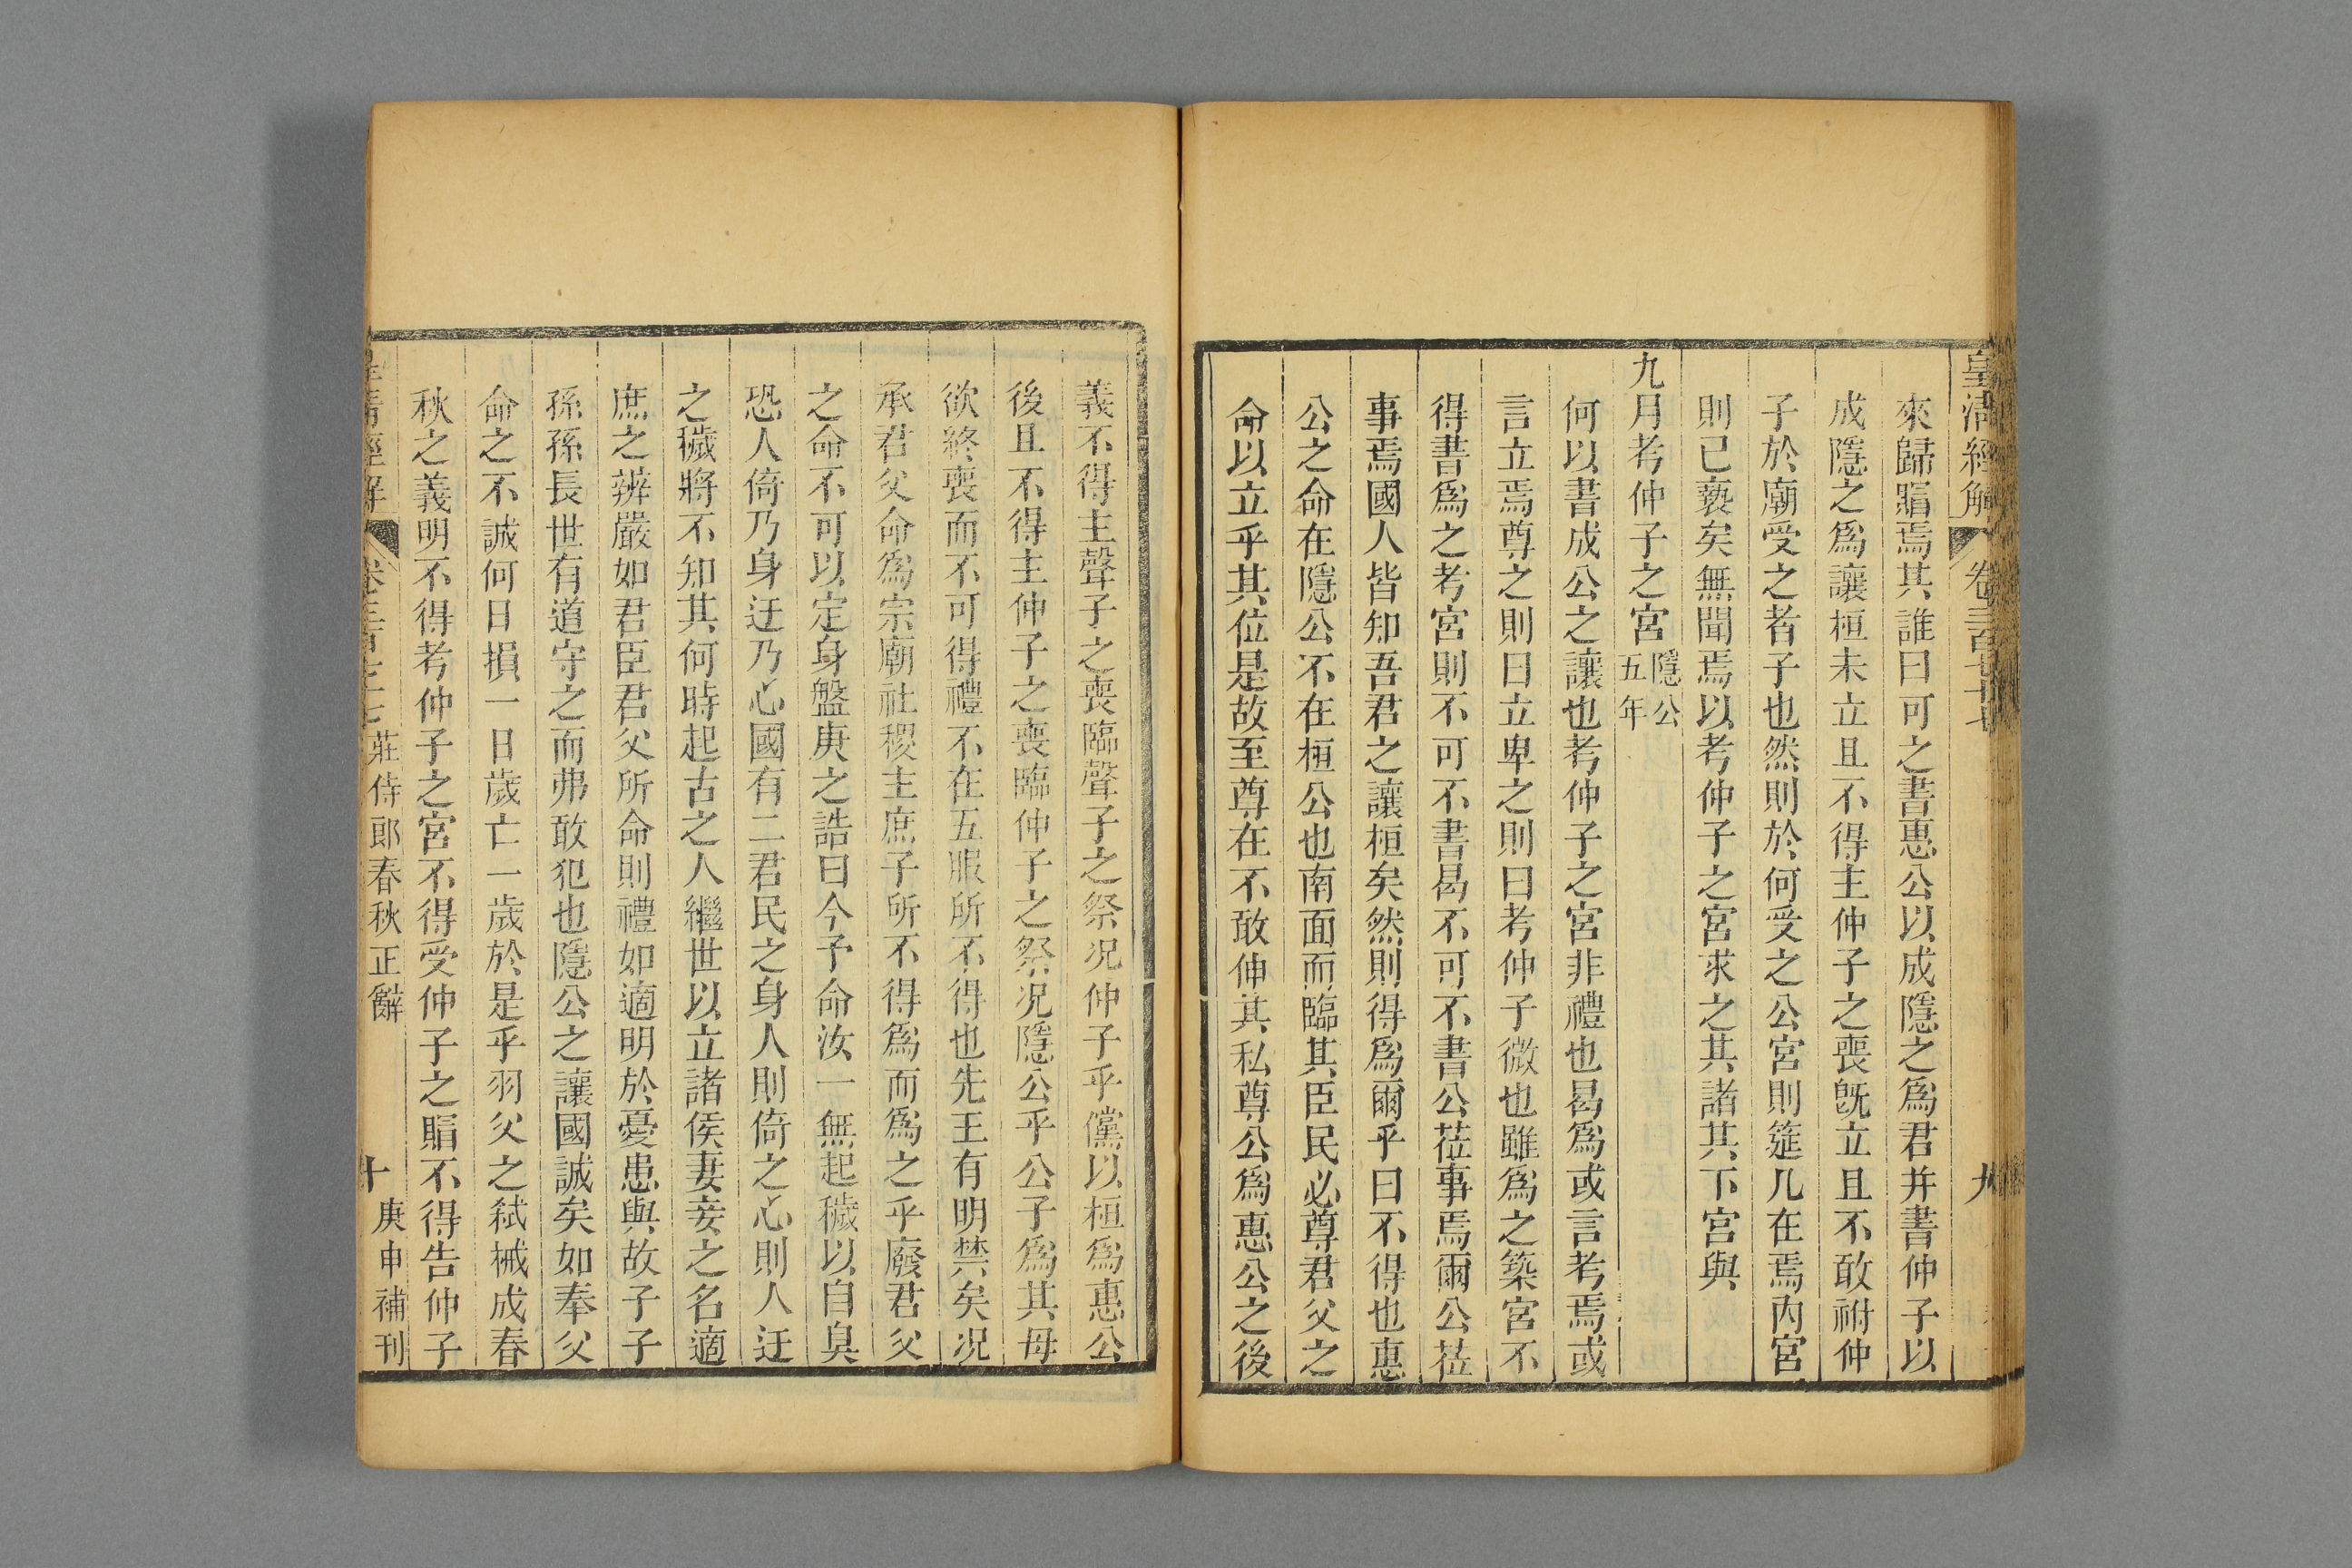 皇清經解 卷三百七十七 九
來歸賵焉其誰曰可之書惠公以成隱之爲君并書仲子以
成隱之爲讓桓未立且不得主仲子之喪旣立且不敢祔仲
子於廟受之者子也然則於何受之公宮則筵几在焉内宮
則已褻矣無聞焉以考仲子之宮求之其諸其下宮與
九月考仲子之宮隱公五年
何以書成公之讓也考仲子之宮非禮也曷爲或言考焉或
言立焉尊之則曰立卑之則曰考仲子微也雖爲之築宮不
得書爲之考宮則不可不書曷不可不書公莅事焉爾公莅
事焉國人皆知吾君之讓桓矣然則得爲爾乎曰不得也惠
公之命在隱公不在桓公也南面而臨其臣民必尊君父之
命以立乎其位是故至尊在不敢伸其私尊公爲惠公之後
義不得主聲子之喪臨聲子之祭况仲子乎儻以桓爲惠公
後且不得主仲子之喪臨仲子之祭况隱公乎公子爲其母
欲終喪而不可得禮不在五服所不得也先王有明禁矣况
承君父命爲宗廟社稷主庶子所不得爲而爲之乎廢君父
之命不可以定身盤庚之誥曰今予命汝一無起穢以自臭
恐人倚乃身迂乃心國有二君民之身人則倚之心則人迂
之穢將不知其何時起古之人繼世以立諸侯妻妾之名適
庶之辨嚴如君臣君父所命則禮如適明於憂患與故子子
孫孫長世有道守之而弗敢犯也隱公之讓國誠矣如奉父
命之不誠何日損一日歲亡一歲於是乎羽父之弑械成春
秋之義明不得考仲子之宮不得受仲子之賵不得告仲子
皇清經解 卷三百七十七 莊侍郎春秋正辭 十 庚申補刊